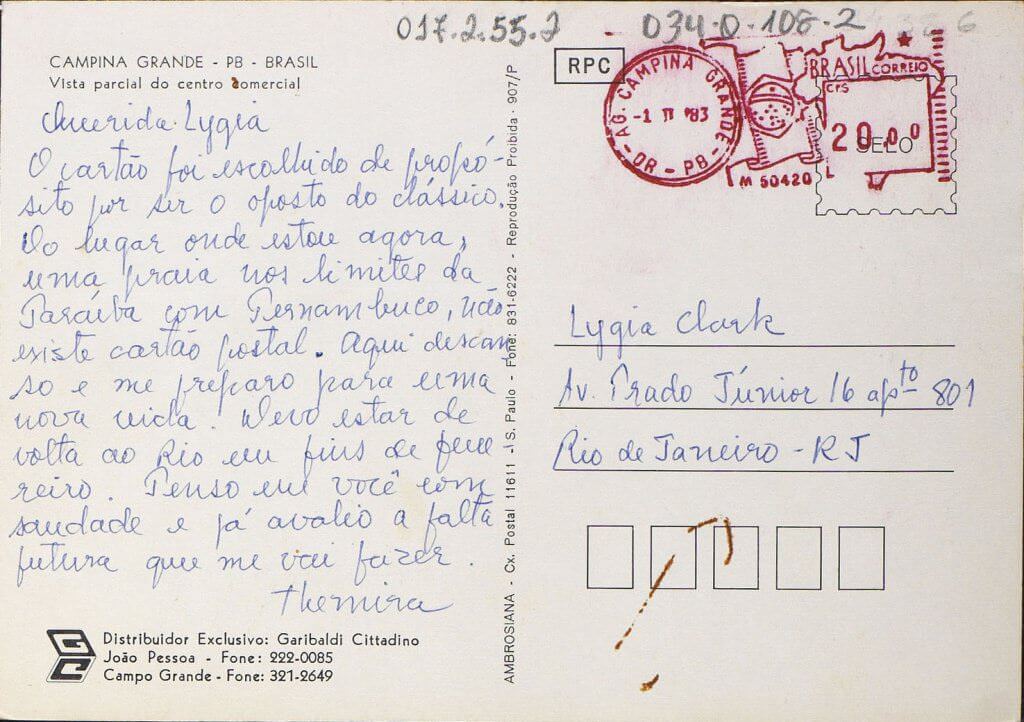 017.2.55.2
034.0.108.2
CAMPINA GRANDE - PB - BRASIL
Vista parcial do centro comercial
Querida Lygia
O cartão foi escolhido de propó-
sito por ser o oposto do clássico.
Do lugar onde estou agora,
uma praia nos limites da
Paraíba com Pernambuco, não
existe cartão postal. Aqui descan
so e me preparo para uma
nova vida. Devo estar de
volta ao Rio em fins de feve-
reiro. Penso em você com
saudade e já avalio a falta
futura que me vai fazer.
Themira
GC
Distribuidor Exclusivo: Garibaldi Cittadino
João Pessoa - Fone: 222-0085
Campo Grande - Fone: 321-2649
AMBROSIANA - Cx. Postal 11611 - S. Paulo - Fone: 831-6222 - Reprodução Proibida - 907/P
RPC
AG. CAMPINA GRANDE
-1 II 83
DR - PB
M 50420 L
BRASIL CORREIO
CrS
20.00
SELO
Lygia Clark
Av. Prado Júnior 16 aptº 801
Rio de Janeiro - RJ